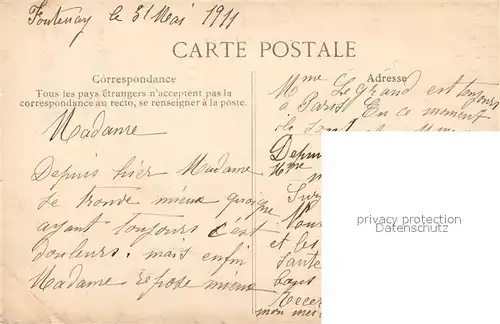 Fontenay le 31 Mai 1911
CARTE POSTALE
Correspondance
Tous les pays étrangers n'acceptent pas la
correspondance au recto, se renseigner à la poste.
Madame
Depuis hier Madame
se trouve mieux quoique
ayant toujours c'est
douleurs. mais enfin
Madame repose mieux
Adresse
Mme Legrand est toujours
à Paris En ce moment
Depui
Mme
et les
sante
mon me
privacy protection
Datenschutz